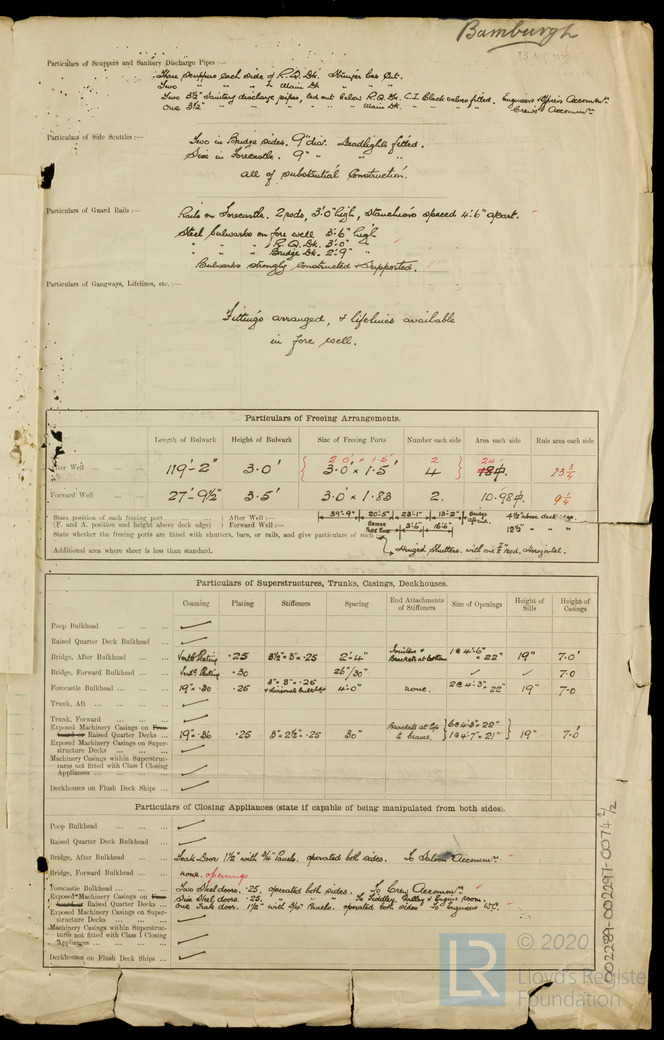 Bamburgh
13 AUG
Particulars of Scuppers and Sanitary Discharge Pipes :—
Three scuppers each side of R.Q.Dk. Stringer bar cut.
Two " " " " Main Dk
Two 3½" Sanitary discharge pipes, led out below R.Q.Dk. C.I. Clack valves fitted. Engineers & Accommn.
One 3½" " " " " " Main Dk. " " " " Crew's Accommn.
Particulars of Side Scuttles :—
Two in Bridge sides. 9" dia. Deadlights fitted.
Six in Forecastle. 9" " " "
all of substantial Construction.
Particulars of Guard Rails :—
Rails on Forecastle. 2 rods, 3'.0" high, Stanchions spaced 4'.6" apart.
Steel bulwarks on fore well 3'.6" high
" " " R.Q.Dk. 3'.0" "
" " " Bridge Dk. 2'.9" "
Bulwarks strongly constructed & supported.
Particulars of Gangways, Lifelines, etc. :—
Fittings arranged, & lifelines available
in fore well.
Particulars of Freeing Arrangements.
Length of Bulwark Height of Bulwark Size of Freeing Ports Number each side Area each side Rule area each side
2.0' × 1.5' 2 24
After Well 119'-2" 3.0' 3.0' × 1.5' 4 18 23 3/4
Forward Well 27'-9½" 3.5' 3.0' × 1.83 2. 10.98 9¼
State position of each freeing port After Well :— 39'-9" 20'-5" 23'-1" 13'-2" Bridge 4½" above deck
(F. and A. position and height above deck edge) Forward Well :— Bridge 3'-6" 16'-6" 12½" " "
State whether the freeing ports are fitted with shutters, bars, or rails, and give particulars of such
Hinged Shutters. with one rod. Horizontal.
Additional area where sheer is less than standard.
Particulars of Superstructures, Trunks, Casings, Deckhouses.
Coaming Plating Stiffeners Spacing End Attachments of Stiffeners Size of Openings Height of Sills Height of Casings
Poop Bulkhead ✓
Raised Quarter Deck Bulkhead ✓
Bridge, After Bulkhead Vertl Plating .25 3½" × 3" × .25 2'-4" Brackets at bottom 1 @ 4'-6" × 22" 19" 7.0'
Bridge, Forward Bulkhead Vertl Plating .30 26"/30" ✓ ✓ 7.0
Forecastle Bulkhead 19" × .30 .25 3" × 3" × .25 4'-0" none. 2 @ 4'.3" × 22" 19" 7-0
Trunk, Aft ✓
Trunk, Forward ✓
Exposed Machinery Casings on Freeboard or Raised Quarter Decks 19" × .36 .25 3" × 2½" × .25 30" Brackets at top to beams. 6 @ 4'.3" × 22" 1 @ 4'-7" × 21" 19" 7.0'
Exposed Machinery Casings on Superstructure Decks ✓
Machinery Casings within Superstructures not fitted with Class 1 Closing Appliances ✓
Deckhouses on Flush Deck Ships ✓
Particulars of Closing Appliances (state if capable of being manipulated from both sides).
Poop Bulkhead ✓
Raised Quarter Deck Bulkhead ✓
Bridge, After Bulkhead Teak Door 1½" with ¾" Panels. operated both sides. To Saloon Accommn.
Bridge, Forward Bulkhead none. openings
Forecastle Bulkhead Two Steel doors. .25, operated both sides. To Crew Accommn.
Exposed Machinery Casings on Freeboard or Raised Quarter Decks Six Steel doors. .25, " " " To Fiddley, Galley & Engine room.
One Teak door. 1½" with ¾" Panels. operated both sides To Engineers W.C.
Exposed Machinery Casings on Superstructure Decks ✓
Machinery Casings within Superstructures not fitted with Class 1 Closing Appliances ✓
Deckhouses on Flush Deck Ships ✓
002289-002297-0074 2/2
LR
© 2020
Lloyd's Register
Foundation